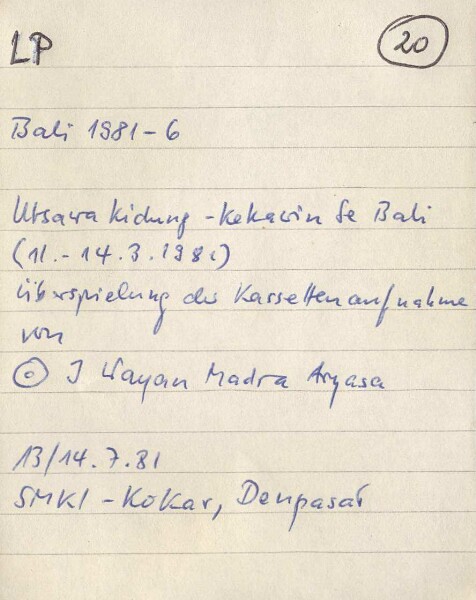 LP 20
Bali 1981-6
Utsawa kidung - Kekawin Se Bali
(11.-14.3.1981)
Überspielung der Kassettenaufnahme
von
© I Wayan Madra Aryasa
13/14.7.81
SMKI - KOKAR, Denpasar